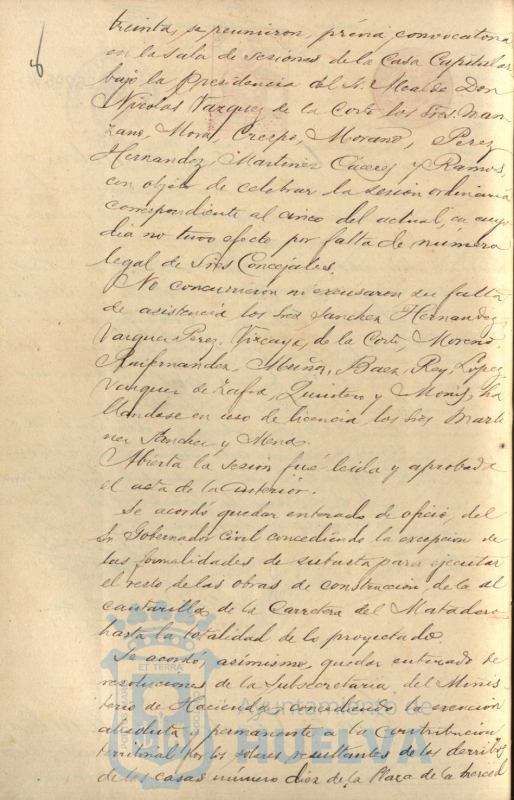 6
treinta, se reunieron, prévia convocatoria
en la sala de sesiones de la Casa Capitular
bajo la Presidencia del Sr. Alcalde Don
Nicolas Vazquez de la Corte los Sres. Man-
zano, Mora, Crespo, Morano, Perez
Hernandez, Martinez Cáceres y Ramos,
con objeto de celebrar la sesión ordinaria
correspondiente al cinco del actual, en cuyo
dia no tuvo efecto por falta de número
legal de Sres Concejales.
No concurrieron ni excusaron su falta
de asistencia los Sres Sanchez Hernandez,
Vazquez Perez, Vizcaya, de la Corte, Moreno,
Ruifernandez, Baez, Rey, López,
Vazquez de Zafra, Quintero y Monis, ha
llandose en uso de licencia los Sres Marti
nez Sanchez y Mena.
Abierta la sesion fué leida y aprobada
el acta de la anterior.
Se acordó quedar enterado de oficio, del
Sr Gobernador Civil concediendo la excepción de
las formalidades de subasta para ejecutar
el resto de las obras de construcción de la al
cantarilla de la Carretera del Matadero
hasta la totalidad de lo proyectado.
Se acordó, asimismo, quedar enterado de
resoluciones de la Subsecretaria del Minis
terio de Hacienda concediendo la exención
absoluta y permanente a la contribución
territorial por los solares resultantes de los derribos
de las casas número diez de la Plaza de la Merced
ET TERRA
Ayuntamiento de
HUELVA